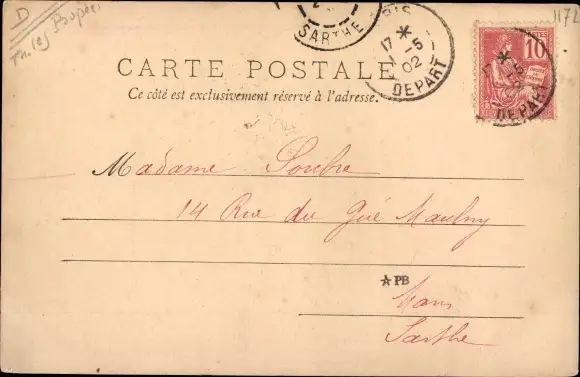 D
1172
SARTHE
PARIS
17 * -5
02
DEPART
10
17 *
DEPART
CARTE POSTALE
Ce côté est exclusivement réservé à l'adresse.
Madame Soubre
14 Rue du Gué Maulny
☆PB
Mans
Sarthe